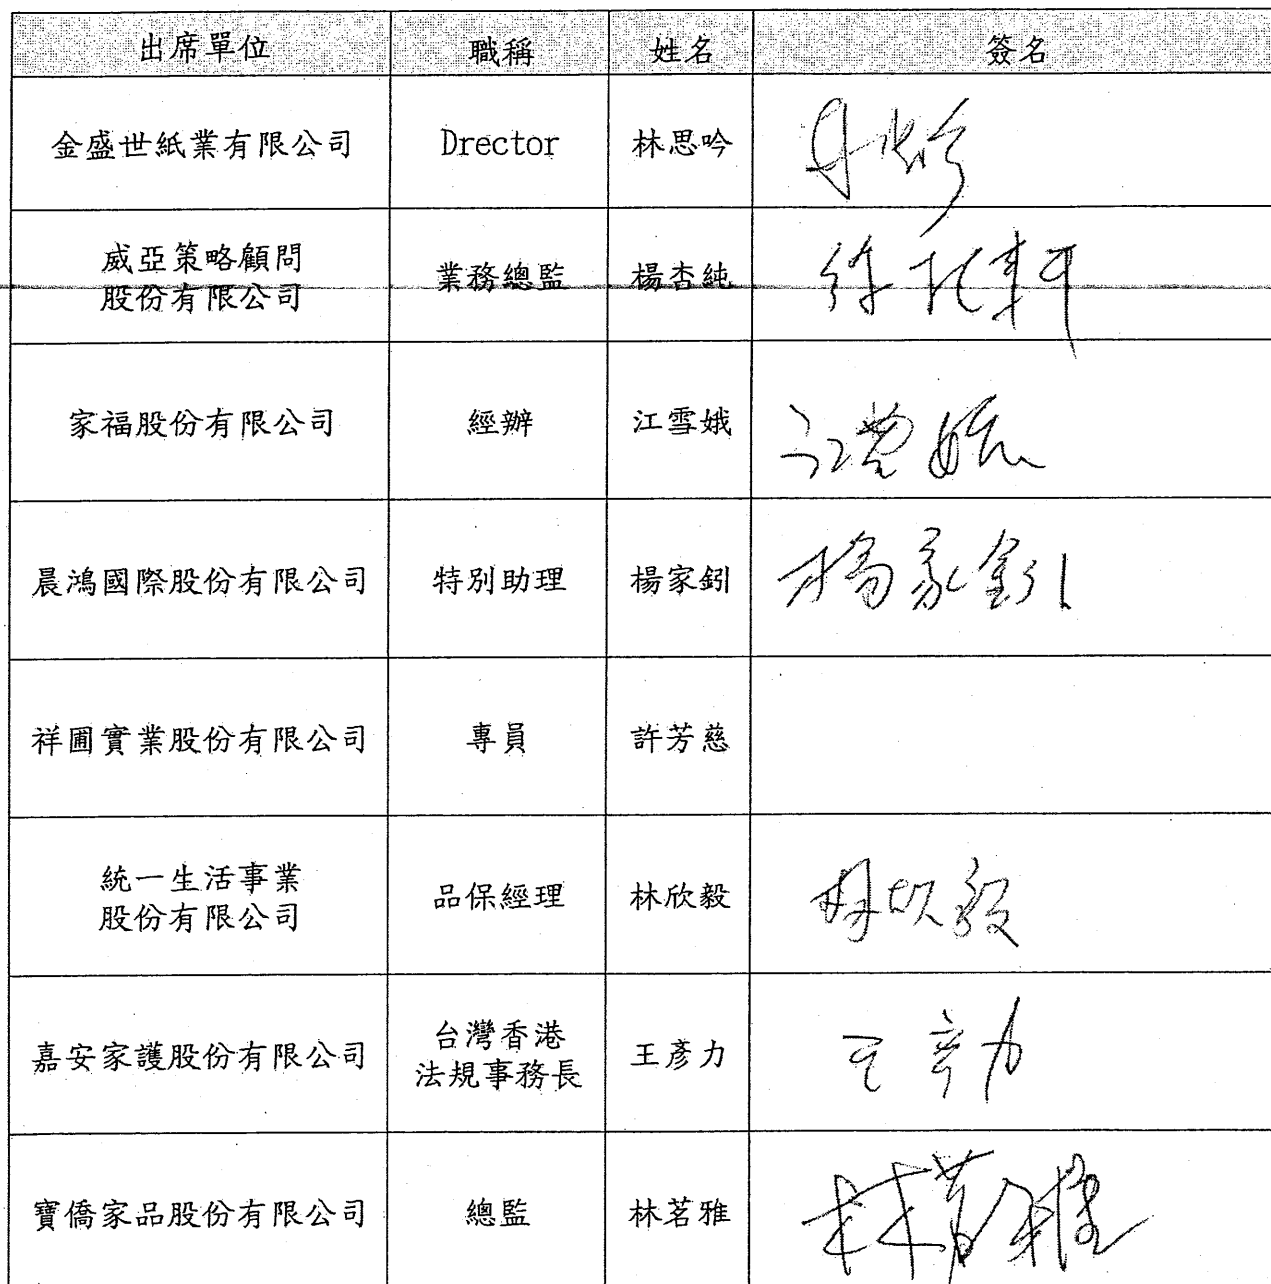 出席單位 職稱 姓名 簽名
金盛世紙業有限公司 Drector 林思吟
威亞策略顧問
股份有限公司 業務總監 楊杏純
家福股份有限公司 經辦 江雪娥 江雪娥
晨鴻國際股份有限公司 特別助理 楊家釼 楊家釼
祥圃實業股份有限公司 專員 許芳慈
統一生活事業
股份有限公司 品保經理 林欣毅 林欣毅
嘉安家護股份有限公司 台灣香港
法規事務長 王彥力 王彥力
寶僑家品股份有限公司 總監 林茗雅 林茗雅